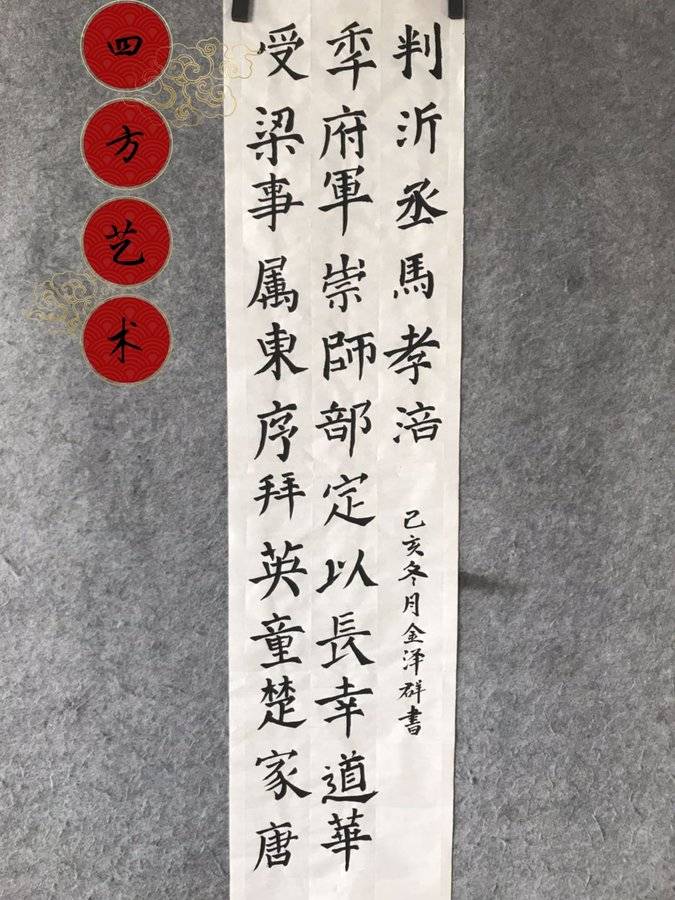 四方艺术
受梁事属東序拜英童楚家唐
秊府軍崇師部定以長幸道華
判沂丞馬孝涪
己亥冬月金泽群書